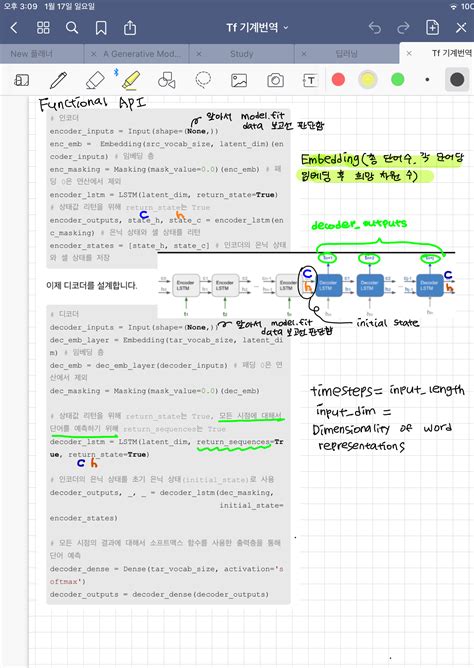 오후 3:09 1월 17일 일요일
Tf 기계번역
New 플래너
A Generative Mod...
Study
딥러닝
Tf 기계번역
Functional API
# 인코더
encoder_inputs = Input(shape=(None,))
알아서 model.fit
data 보고선 판단함
enc_emb = Embedding(src_vocab_size, latent_dim)(en
coder_inputs) # 임베딩 층
enc_masking = Masking(mask_value=0.0)(enc_emb) # 패
딩 0은 연산에서 제외
encoder_lstm = LSTM(latent_dim, return_state=True)
# 상태값 리턴을 위해 return_state는 True
c h
encoder_outputs, state_h, state_c = encoder_lstm(en
c_masking) # 은닉 상태와 셀 상태를 리턴
encoder_states = [state_h, state_c] # 인코더의 은닉 상태
와 셀 상태를 저장
Embedding(총 단어수, 각 단어당
임베딩 후 희망 차원 수)
decoder_outputs
Encoder LSTM
Encoder LSTM
Encoder LSTM
c
h
Decoder LSTM
Decoder LSTM
Decoder LSTM
c
h
이제 디코더를 설계합니다.
initial state
# 디코더
decoder_inputs = Input(shape=(None,))
알아서 model.fit
data 보고선 판단함
dec_emb_layer = Embedding(tar_vocab_size, latent_di
m) # 임베딩 층
dec_emb = dec_emb_layer(decoder_inputs) # 패딩 0은 연
산에서 제외
dec_masking = Masking(mask_value=0.0)(dec_emb)
# 상태값 리턴을 위해 return_state는 True, 모든 시점에 대해서
단어를 예측하기 위해 return_sequences는 True
decoder_lstm = LSTM(latent_dim, return_sequences=Tr
ue, return_state=True)
c h
timesteps = input_length
input_dim =
Dimensionality of word
representations
# 인코더의 은닉 상태를 초기 은닉 상태(initial_state)로 사용
decoder_outputs, _, _ = decoder_lstm(dec_masking,
initial_state=
encoder_states)
# 모든 시점의 결과에 대해서 소프트맥스 함수를 사용한 출력층을 통해
단어 예측
decoder_dense = Dense(tar_vocab_size, activation='s
oftmax')
decoder_outputs = decoder_dense(decoder_outputs)